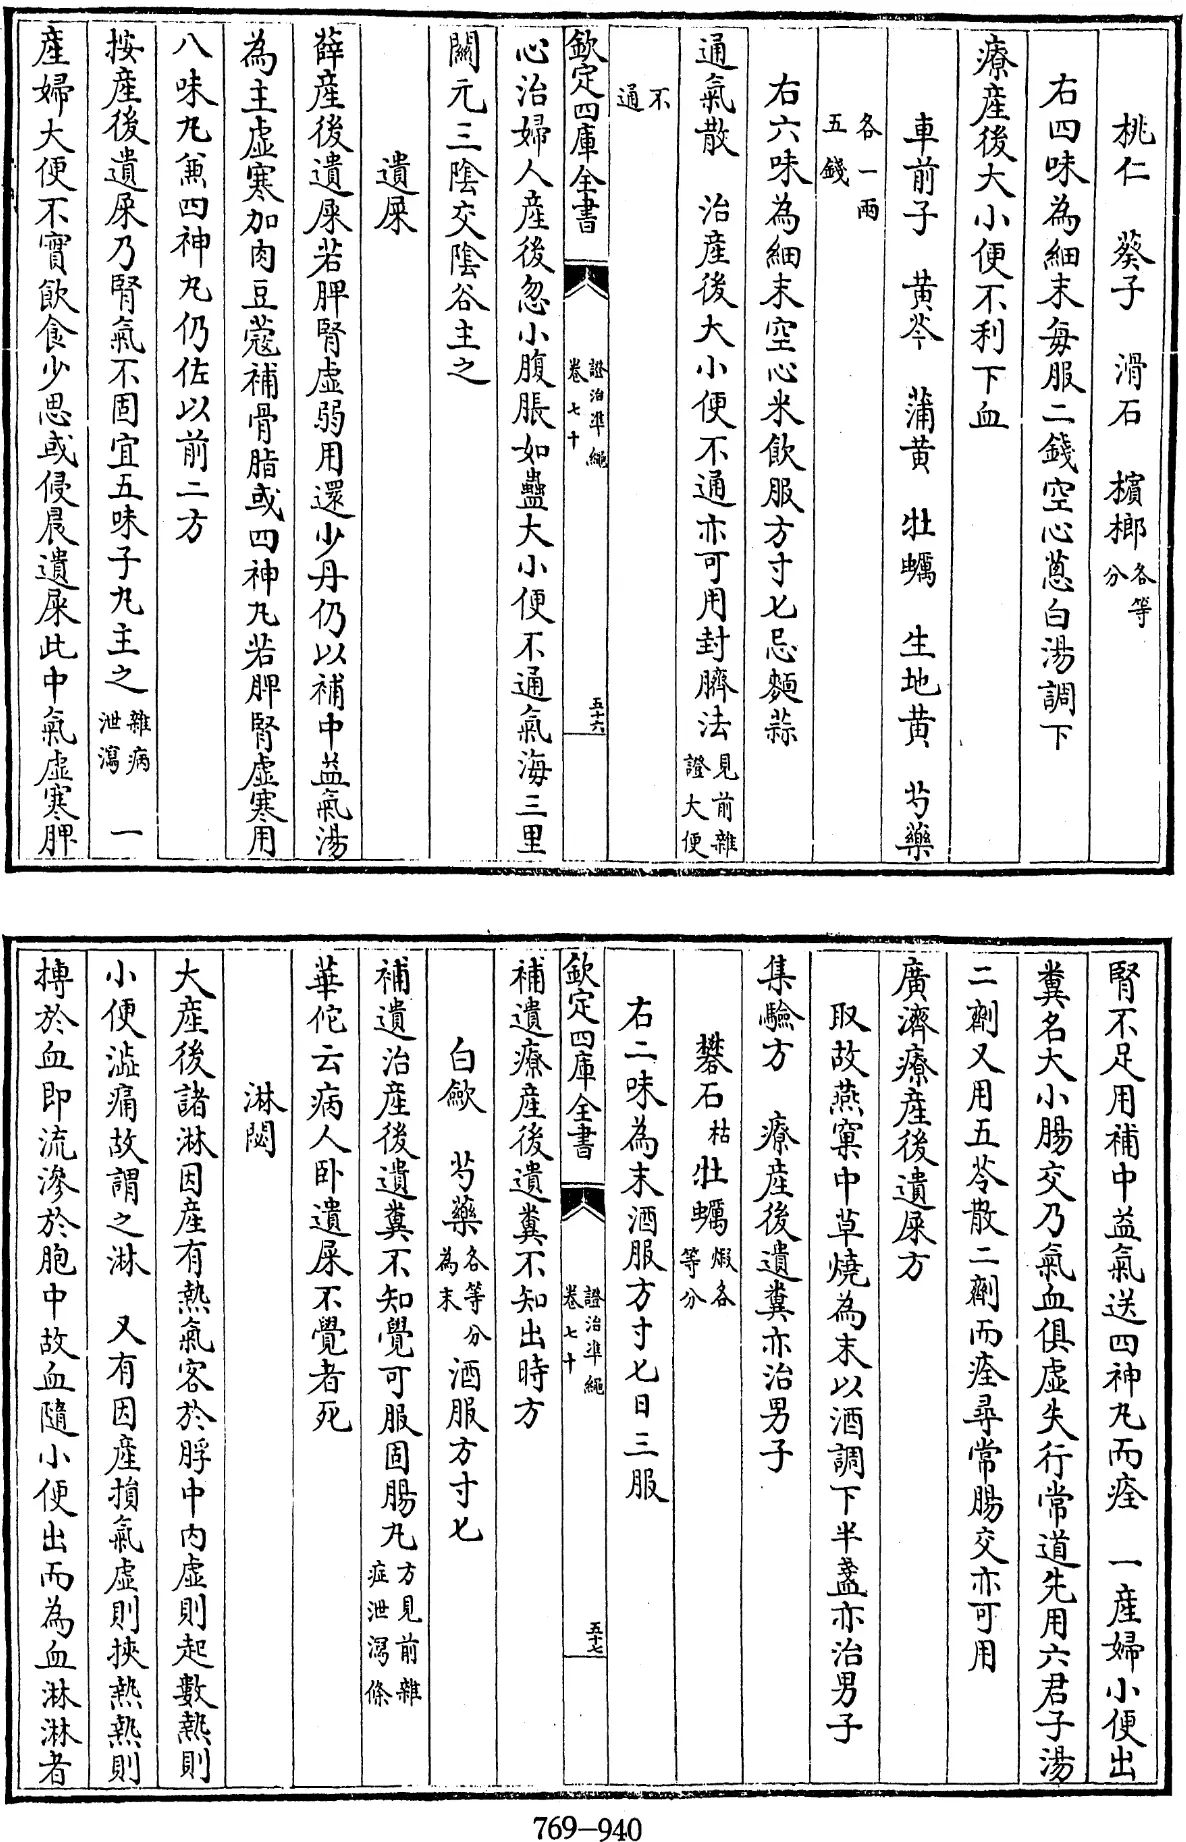 桃仁　葵子　滑石　檳榔各等分
右四味為細末每服二錢空心葱白湯調下
療產後大小便不利下血
車前子　黃芩　蒲黃　牡蠣　生地黃　芍藥
各一兩五錢
右六味為細末空心米飲服方寸匕忌麵蒜
通氣散　治產後大小便不通亦可用封臍法見前雜證大便
不通
欽定四庫全書　證治準繩卷七十　五十六
心治婦人產後忽小腹脹如蠱大小便不通氣海三里
關元三陰交陰谷主之
遺屎
薛產後遺屎若脾腎虛弱用還少丹仍以補中益氣湯
為主虛寒加肉豆蔻補骨脂或四神丸若脾腎虛寒用
八味丸兼四神丸仍佐以前二方
按產後遺尿乃腎氣不固宜五味子丸主之雜病泄瀉　一
產婦大便不實飲食少思或侵晨遺屎此中氣虛寒脾
腎不足用補中益氣送四神丸而痊　一產婦小便出
糞名大小腸交乃氣血俱虛失行常道先用六君子湯
二劑又用五苓散二劑而痊尋常腸交亦可用
廣濟療產後遺屎方
取故燕窠中草燒為末以酒調下半盞亦治男子
集驗方　療產後遺糞亦治男子
礬石枯牡蠣煅各等分
右二味為末酒服方寸匕日三服
欽定四庫全書　證治準繩卷七十　五十七
補遺療產後遺糞不知出時方
白歛　芍藥各等分為末酒服方寸匕
補遺治產後遺糞不知覺可服固腸丸方見前雜症泄瀉條
華佗云病人卧遺屎不覺者死
淋閟
大產後諸淋因產有熱氣客於脬中内虛則起數熱則
小便澁痛故謂之淋　又有因產損氣虛則挾熱熱則
摶於血即流滲於胞中故血隨小便出而為血淋淋者
769-940